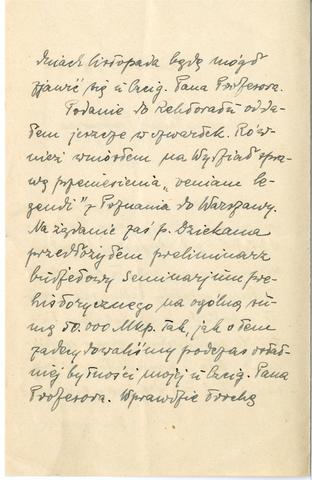 dniach listopada będę mógł
zjawić się u Czcig. Pana Profesora.
Podanie do Rektoratu odda-
łem jeszcze w czwartek. Rów-
nież wniosłem na Wydział spra-
wę przeniesienia „veniam le-
gendi" z Poznania do Warszawy.
Na żądanie zaś p. Dziekana
przedłożyłem preliminarz
budżetowy Seminarjum pre-
historycznego na ogólną su-
mę 50.000 Mkp. tak, jak o tem
zadecydowaliśmy podczas ostat-
niej bytności mojej u Czcig. Pana
Profesora. Wprawdzie trochę